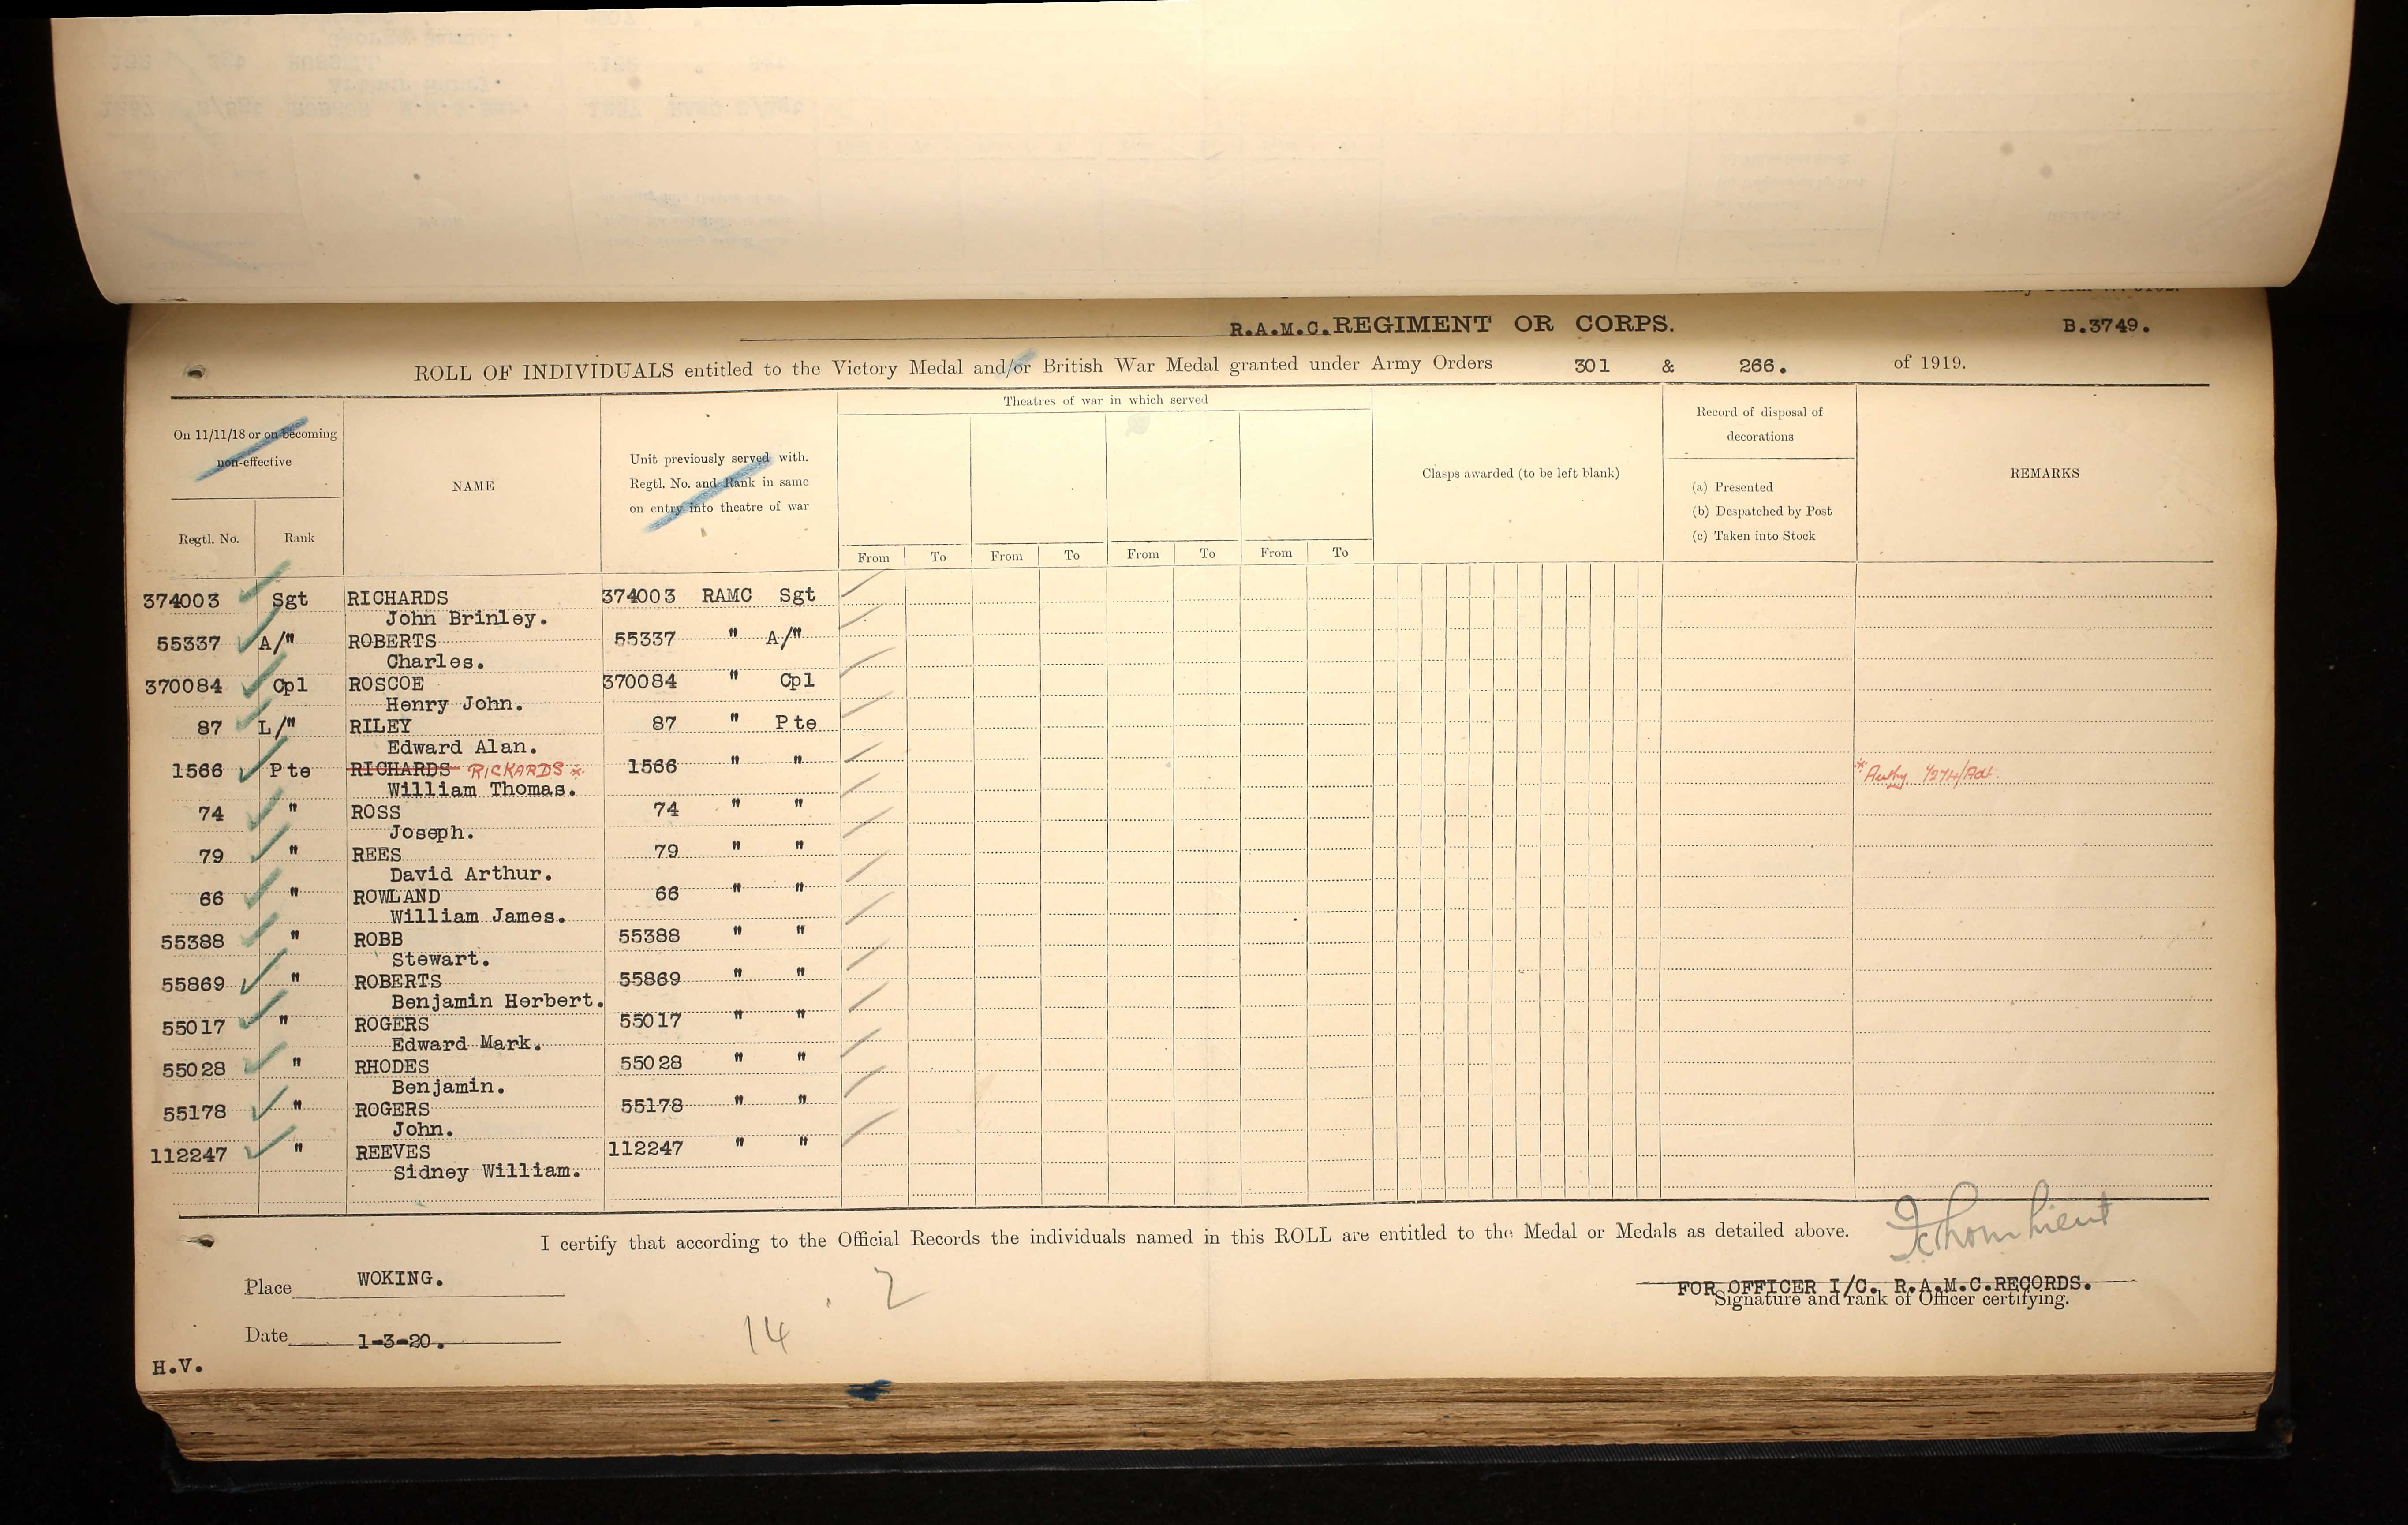 R.A.M.C. REGIMENT OR CORPS.
B.3749.
ROLL OF INDIVIDUALS entitled to the Victory Medal and/or British War Medal granted under Army Orders 301 & 266. of 1919.
On 11/11/18 or on becoming non-effective
Regtl. No.
Rank
NAME
Unit previously served with.
Regtl. No. and Rank in same
on entry into theatre of war
Theatres of war in which served
From To From To From To From To
Clasps awarded (to be left blank)
Record of disposal of
decorations
(a) Presented
(b) Despatched by Post
(c) Taken into Stock
REMARKS
374003 Sgt RICHARDS 374003 RAMC Sgt
John Brinley.
55337 A/" ROBERTS 55337 " A/"
Charles.
370084 Cpl ROSCOE 370084 " Cpl
Henry John.
87 L/" RILEY 87 " Pte
Edward Alan.
1566 Pte RICHARDS RICKARDS * 1566 " "
William Thomas.
74 " ROSS 74 " "
Joseph.
79 " REES 79 " "
David Arthur.
66 " ROWLAND 66 " "
William James.
55388 " ROBB 55388 " "
Stewart.
55869 " ROBERTS 55869 " "
Benjamin Herbert.
55017 " ROGERS 55017 " "
Edward Mark.
55028 " RHODES 55028 " "
Benjamin.
55178 " ROGERS 55178 " "
John.
112247 " REEVES 112247 " "
Sidney William.
I certify that according to the Official Records the individuals named in this ROLL are entitled to the Medal or Medals as detailed above.
Place WOKING.
2
FOR OFFICER I/C. R.A.M.C.RECORDS.
Signature and rank of Officer certifying.
14
Date 1-3-20.
H.V.